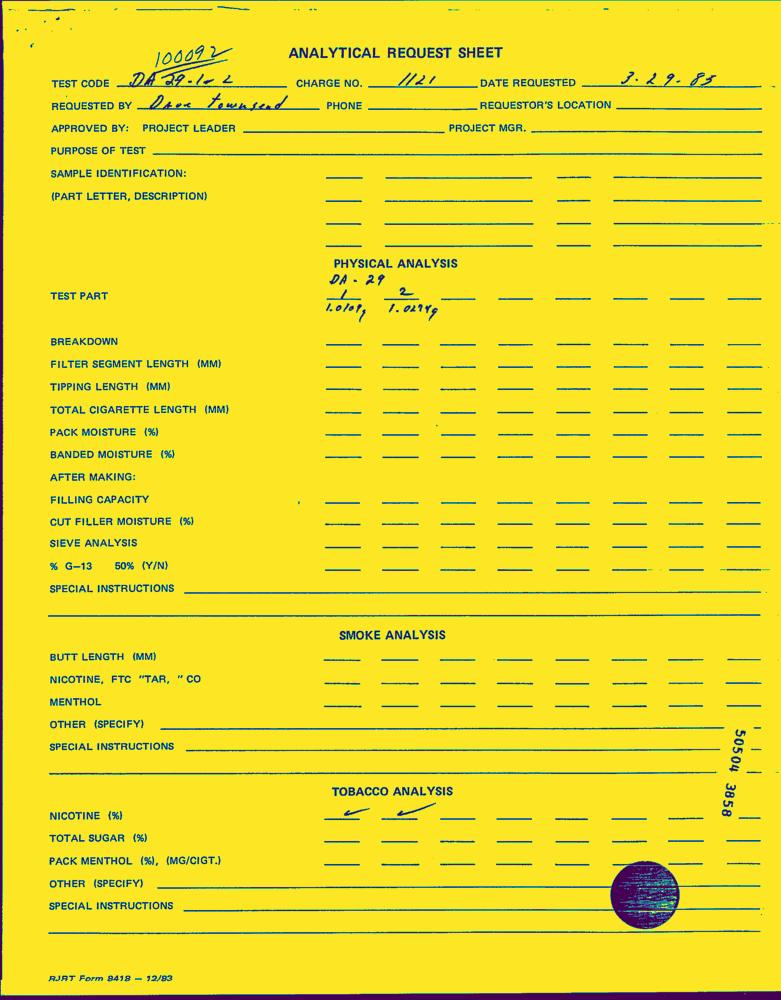 100092
ANALYTICAL REQUEST SHEET
TEST CODE DA 29-1 & 2 CHARGE NO. 1121 DATE REQUESTED 3-29-85
REQUESTED BY Dave Townsend PHONE REQUESTOR'S LOCATION
APPROVED BY: PROJECT LEADER PROJECT MGR.
PURPOSE OF TEST
SAMPLE IDENTIFICATION:
(PART LETTER, DESCRIPTION)
PHYSICAL ANALYSIS
DA - 29
TEST PART 1 2
BREAKDOWN
FILTER SEGMENT LENGTH (MM)
TIPPING LENGTH (MM)
TOTAL CIGARETTE LENGTH (MM)
PACK MOISTURE (%)
BANDED MOISTURE (%)
AFTER MAKING:
FILLING CAPACITY
CUT FILLER MOISTURE (%)
SIEVE ANALYSIS
% G-13 50% (Y/N)
SPECIAL INSTRUCTIONS
SMOKE ANALYSIS
BUTT LENGTH (MM)
NICOTINE, FTC "TAR, " CO
MENTHOL
OTHER (SPECIFY)
SPECIAL INSTRUCTIONS
50504 3858
TOBACCO ANALYSIS
NICOTINE (%) ✓ ✓
TOTAL SUGAR (%)
PACK MENTHOL (%), (MG/CIGT.)
OTHER (SPECIFY)
SPECIAL INSTRUCTIONS
RJRT Form 8418 — 12/83